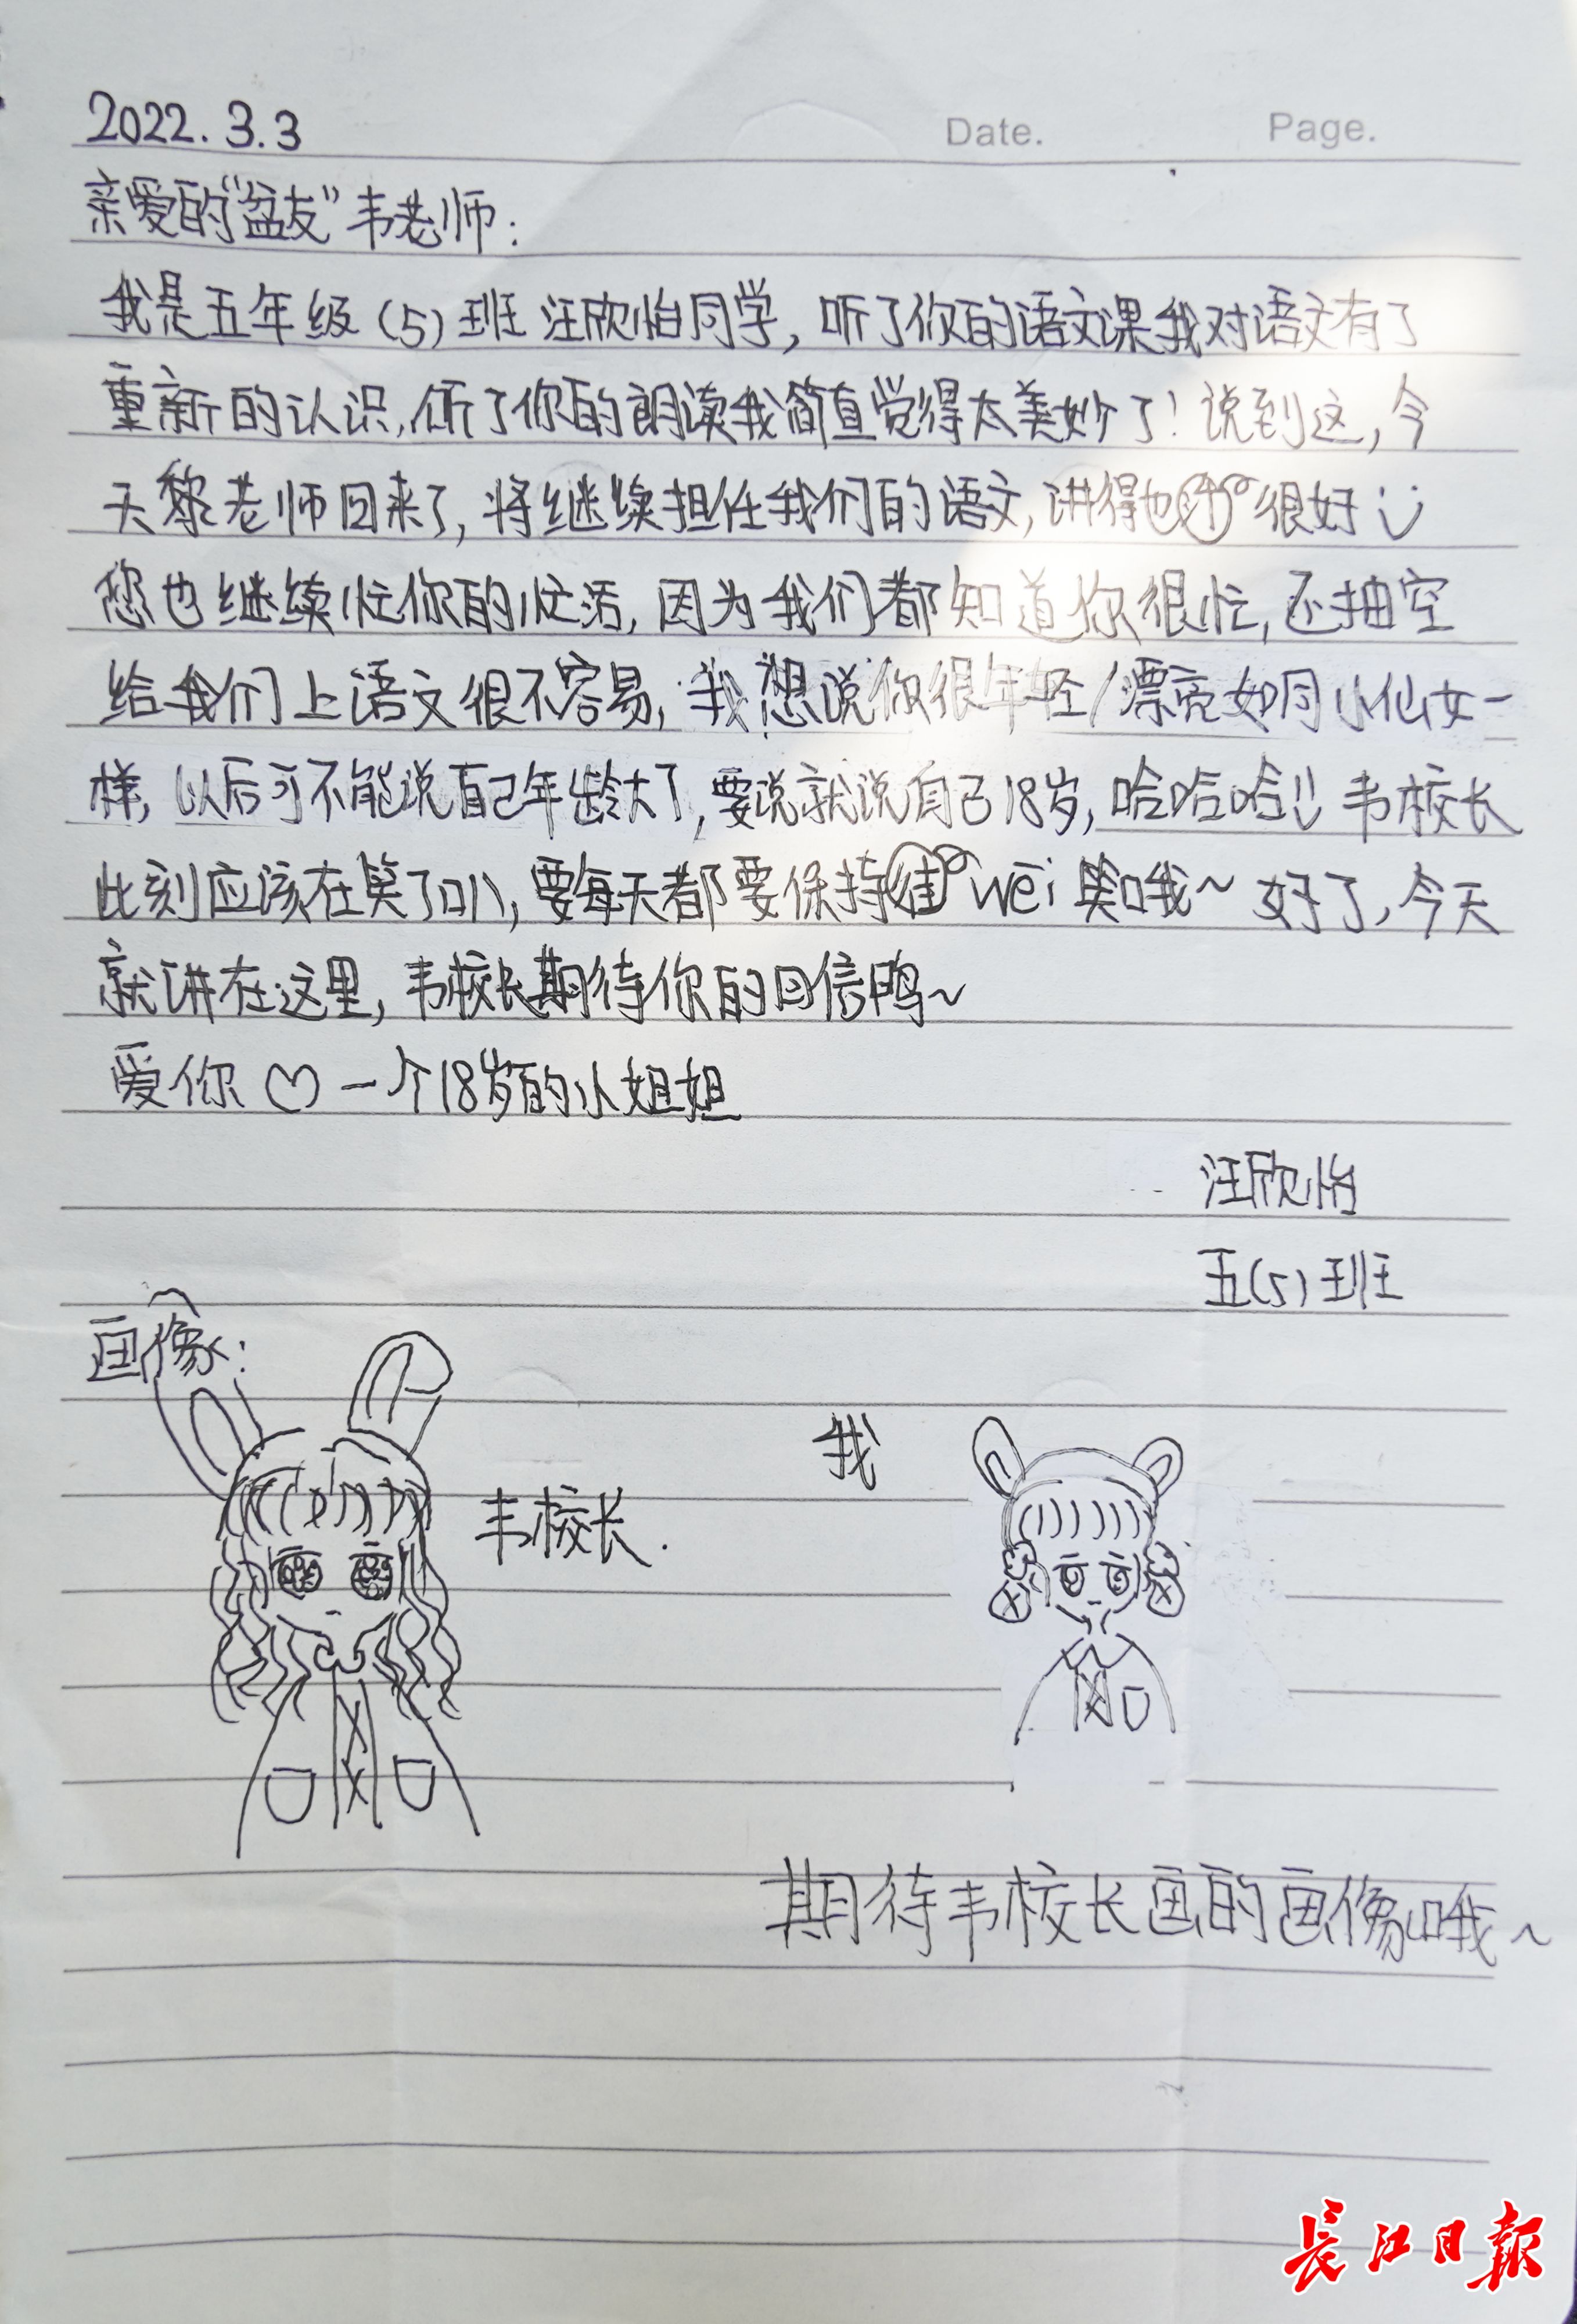 2022.3.3
Date.
Page.
亲爱的“盆友”韦老师：
我是五年级（5）班汪欣怡同学，听了你的语文课我对语文有了
重新的认识，听了你的朗读我简直觉得太美妙了！说到这，今
天黎老师回来了，将继续担任我们的语文，讲得也很好
您也继续忙你的忙活，因为我们都知道你很忙，还抽空
给我们上语文很不容易，我想说你很年轻/漂亮如同小仙女一
样，以后可不能说自己年龄大了，要说就说自己18岁，哈哈哈！！韦校长
此刻应该在笑了叭，要每天都要保持wēi笑哦~好了，今天
就讲在这里，韦校长期待你的回信鸭~
爱你♡一个18岁的小姐姐
汪欣怡
五（5）班
画像：
韦校长.
我
期待韦校长画的画像哦~
長江日報